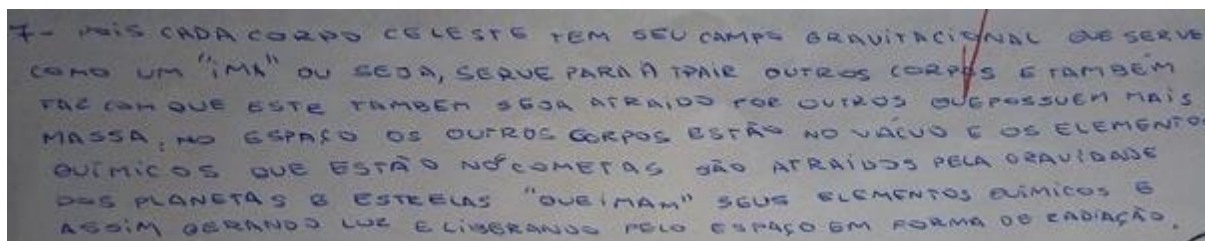 7- POIS CADA CORPO CELESTE TEM SEU CAMPO GRAVITACIONAL QUE SERVE
COMO UM "iMA" OU SEJA, SERVE PARA ATRAIR OUTROS CORPOS E TAMBÉM
FAZ COM QUE ESTE TAMBEM SEJA ATRAIDO POR OUTROS QUE POSSUEM MAIS
MASSA, NO ESPAÇO OS OUTROS CORPOS ESTÃO NO VÁCUO E OS ELEMENTOS
QUÍMICOS QUE ESTÃO NOS COMETAS SÃO ATRAÍDOS PELA GRAVIDADE
DOS PLANETAS E ESTRELAS "QUEIMAM" SEUS ELEMENTOS QUÍMICOS E
ASSIM GERANDO LUZ E LIBERANDO PELO ESPAÇO EM FORMA DE RADIAÇÃO.